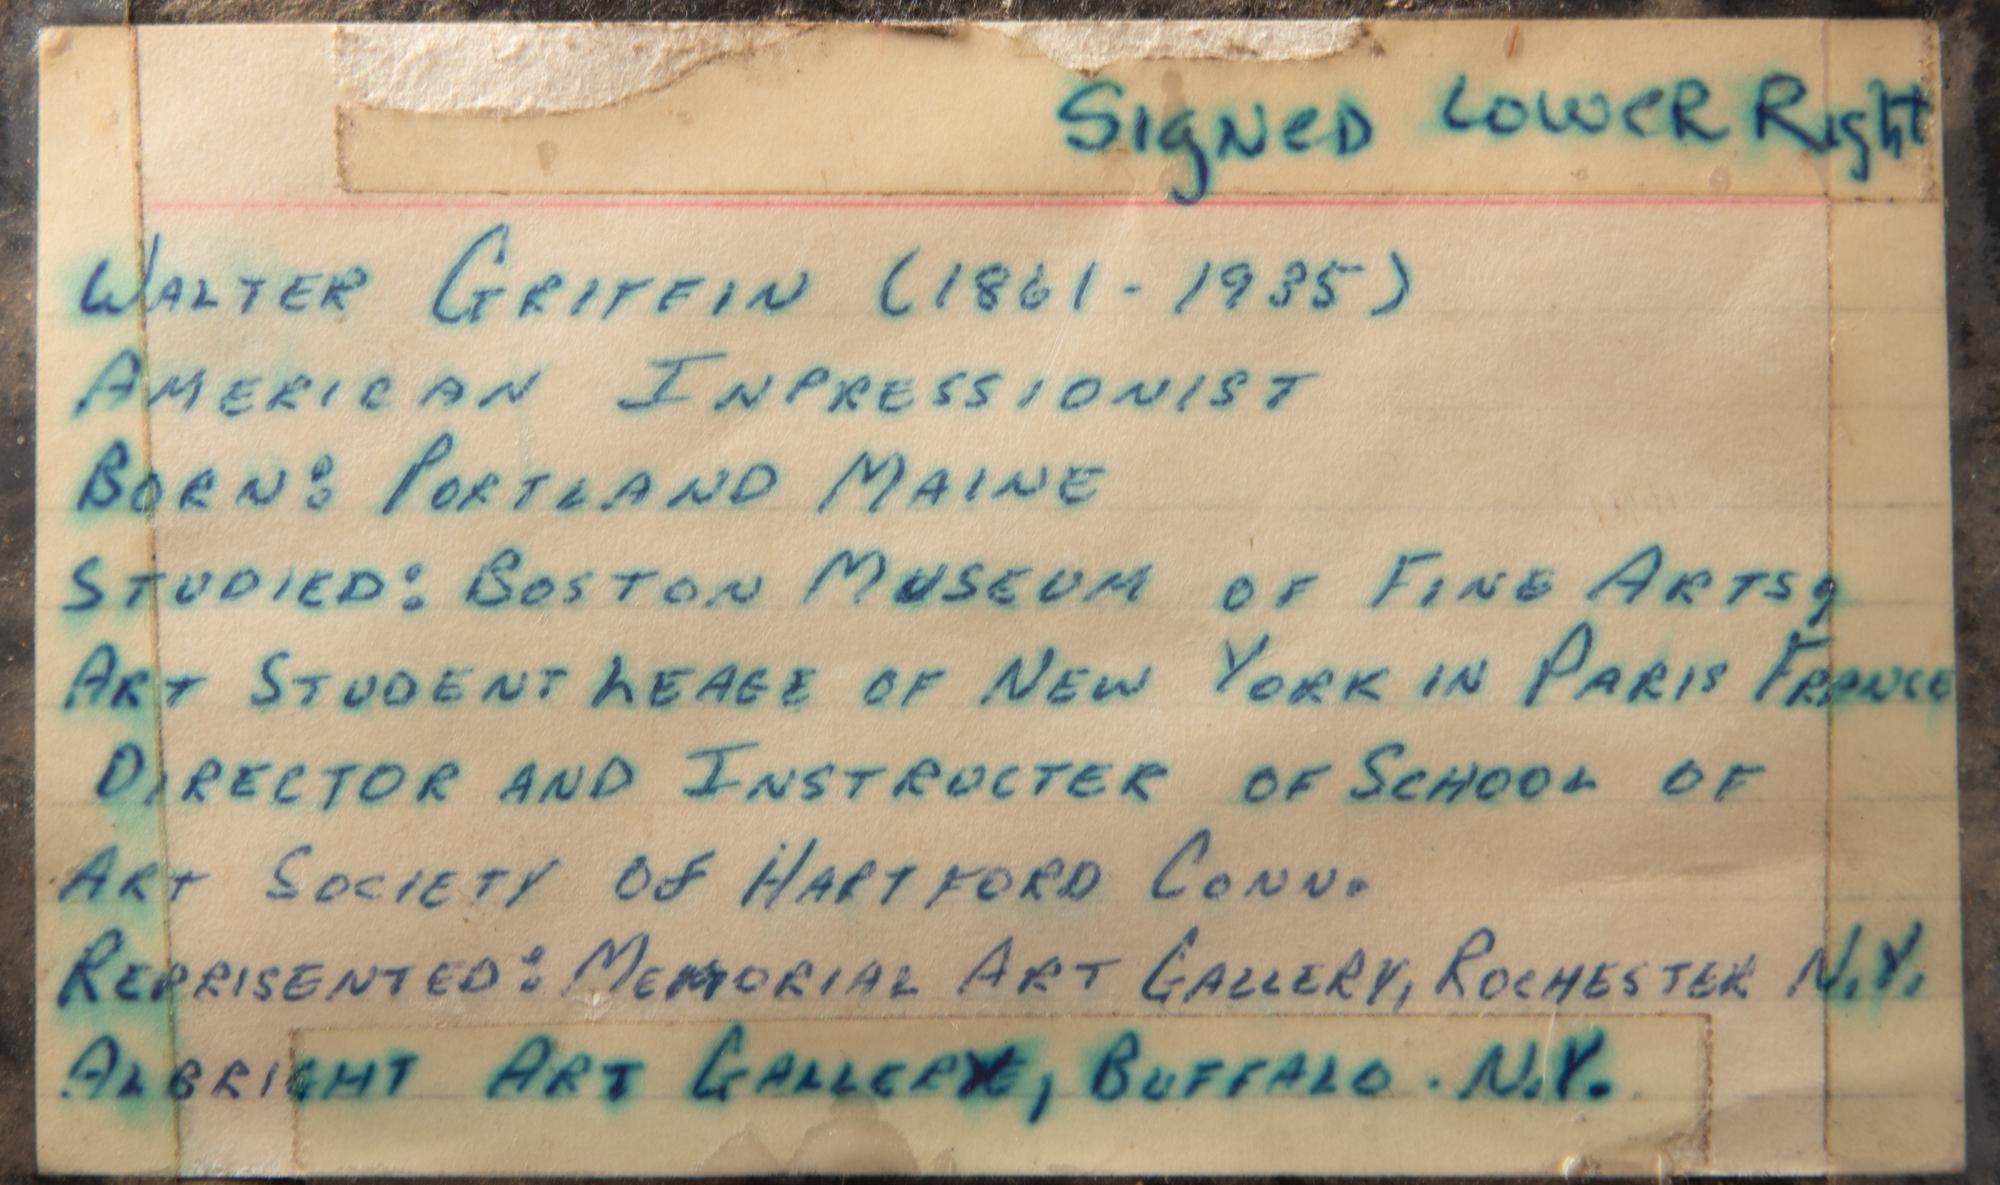 Signed Lower Right
WALTER GRIFFIN (1861 - 1935)
AMERICAN INPRESSIONIST
BORN: PORTLAND MAINE
STUDIED: BOSTON MUSEUM OF FINE ARTS,
ART STUDENT LEAGE OF NEW YORK IN PARIS FRANCE
DIRECTOR AND INSTRUCTER OF SCHOOL OF
ART SOCIETY OF HARTFORD CONN.
REPRISENTED: MEMORIAL ART GALLERY, ROCHESTER N.Y.
ALBRIGHT ART GALLERY, BUFFALO. N.Y.